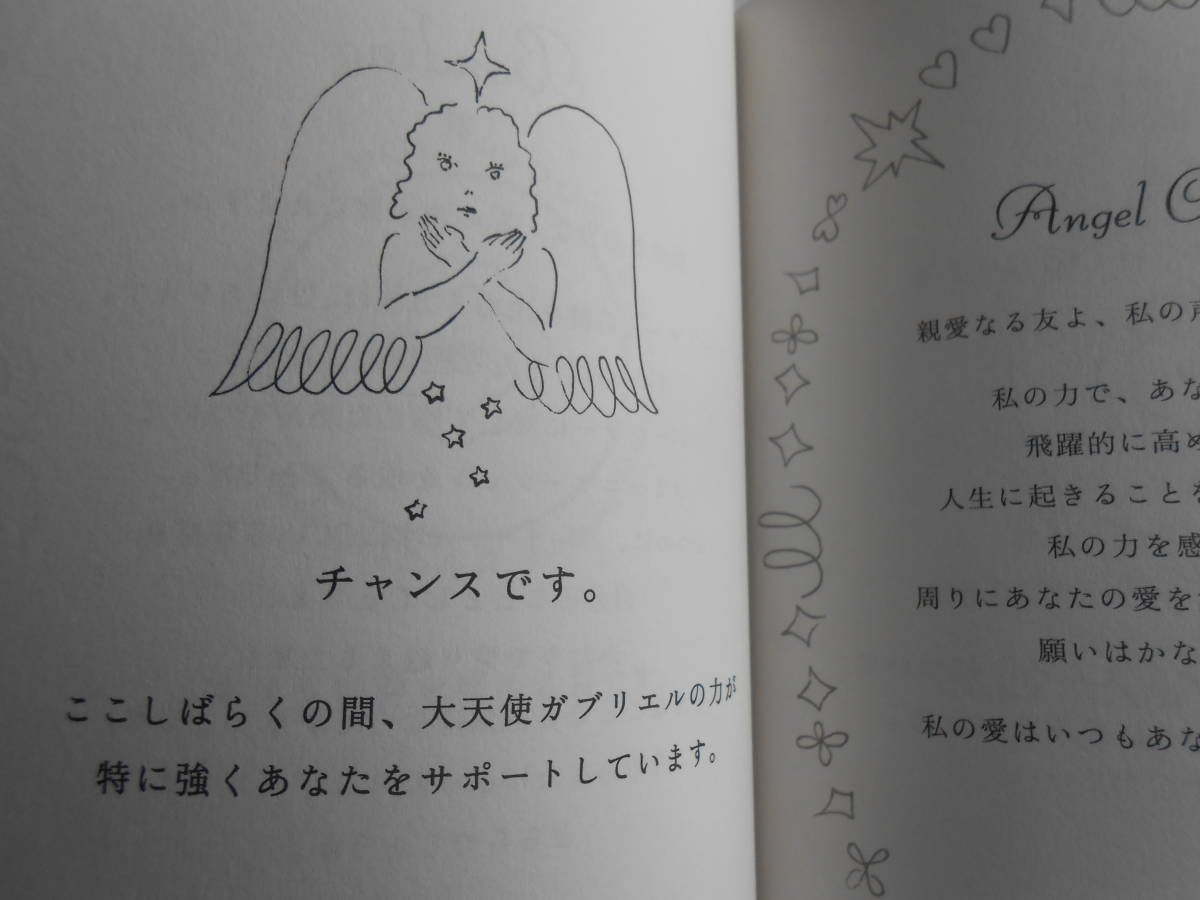 チャンスです。
ここしばらくの間、大天使ガブリエルの力が
特に強くあなたをサポートしています。
Angel
親愛なる友よ、私の声
私の力で、あな
飛躍的に高め
人生に起きることを
私の力を感
周りにあなたの愛を
願いはかな
私の愛はいつもあな